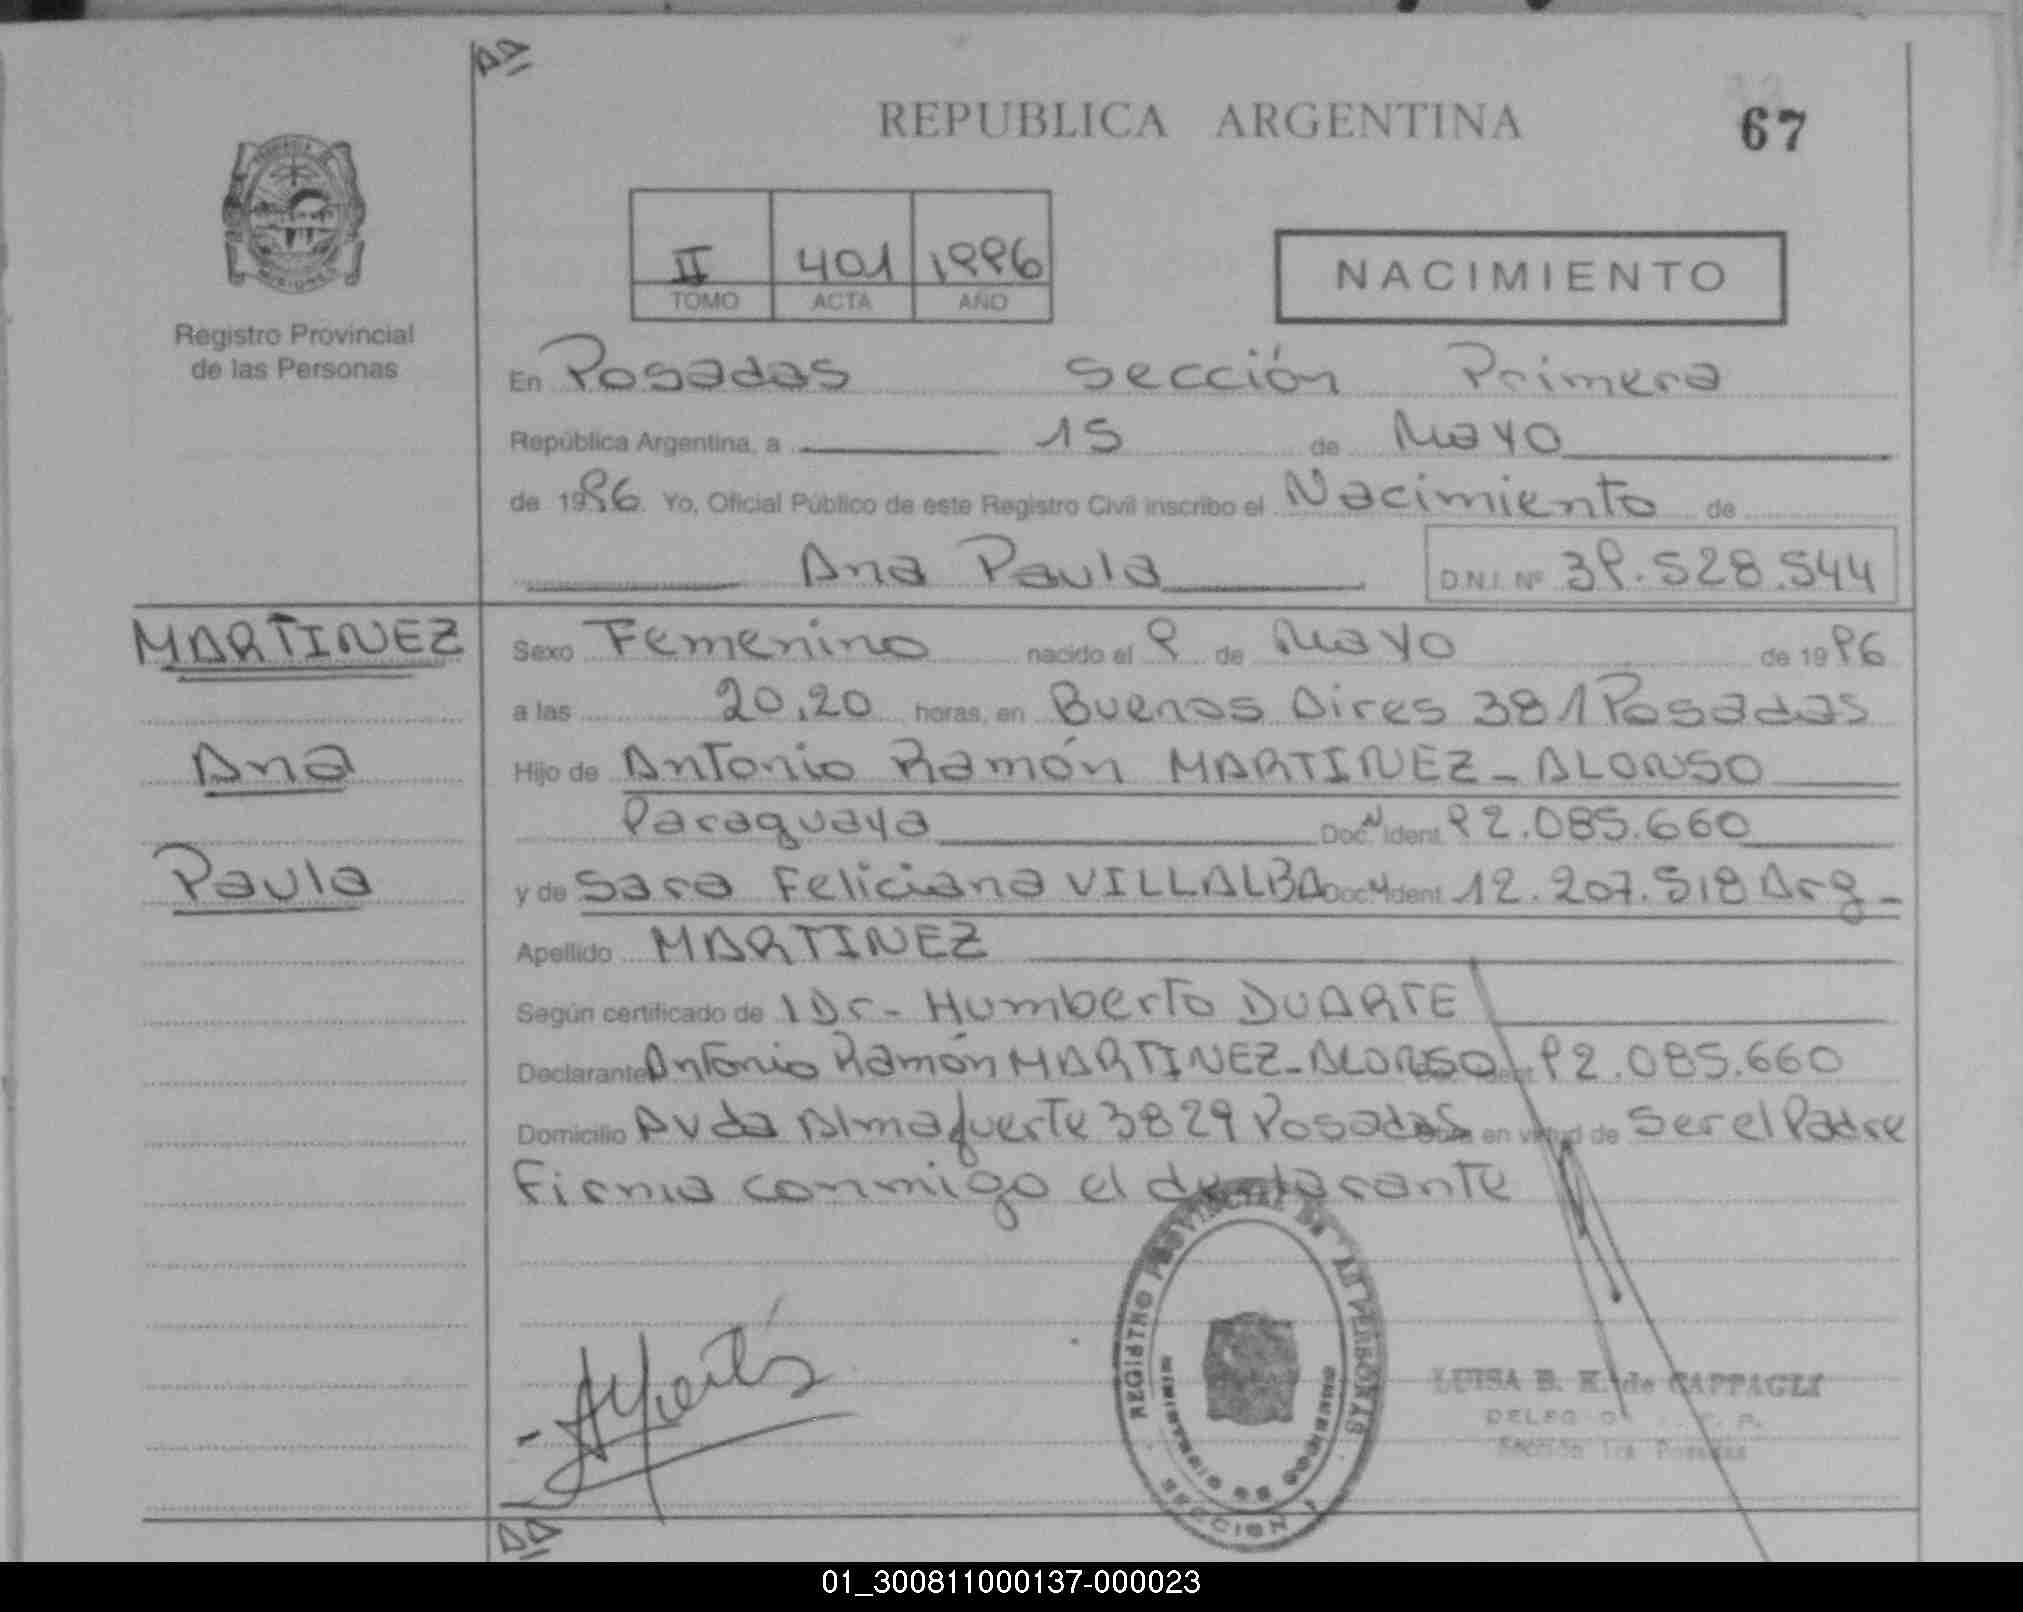 REPUBLICA ARGENTINA
67
II 401 1996
TOMO ACTA AÑO
NACIMIENTO
Registro Provincial
de las Personas
En Posadas Sección Primera
República Argentina, a 15 de Mayo
de 1996. Yo, Oficial Público de este Registro Civil inscribo el Nacimiento de
Ana Paula D.N.I. Nº 39.528.544
MARTINEZ
Ana
Paula
Sexo Femenino nacido el 9 de Mayo de 1996
a las 20,20 horas, en Buenos Aires 381 Posadas
Hijo de Antonio Ramón MARTINEZ-ALONSO
Paraguaya Doc. Ident. 92.085.660
y de Sara Feliciana VILLALBA Doc. Ident. 12.207.518 Arg-
Apellido MARTINEZ
Según certificado de 1 Dr- Humberto DUARTE
Declarante Antonio Ramón MARTINEZ-ALONSO 92.085.660
Domicilio Avda Almafuerte 3829 Posadas en virtud de Ser el Padre
Firma conmigo el declarante
REGISTRO PROVINCIAL DE LAS PERSONAS
MINISTERIO DE GOBIERNO
SECCION 1
LUISA B. K. de CAPPAGLI
Sección 1ra Posadas
01_300811000137-000023